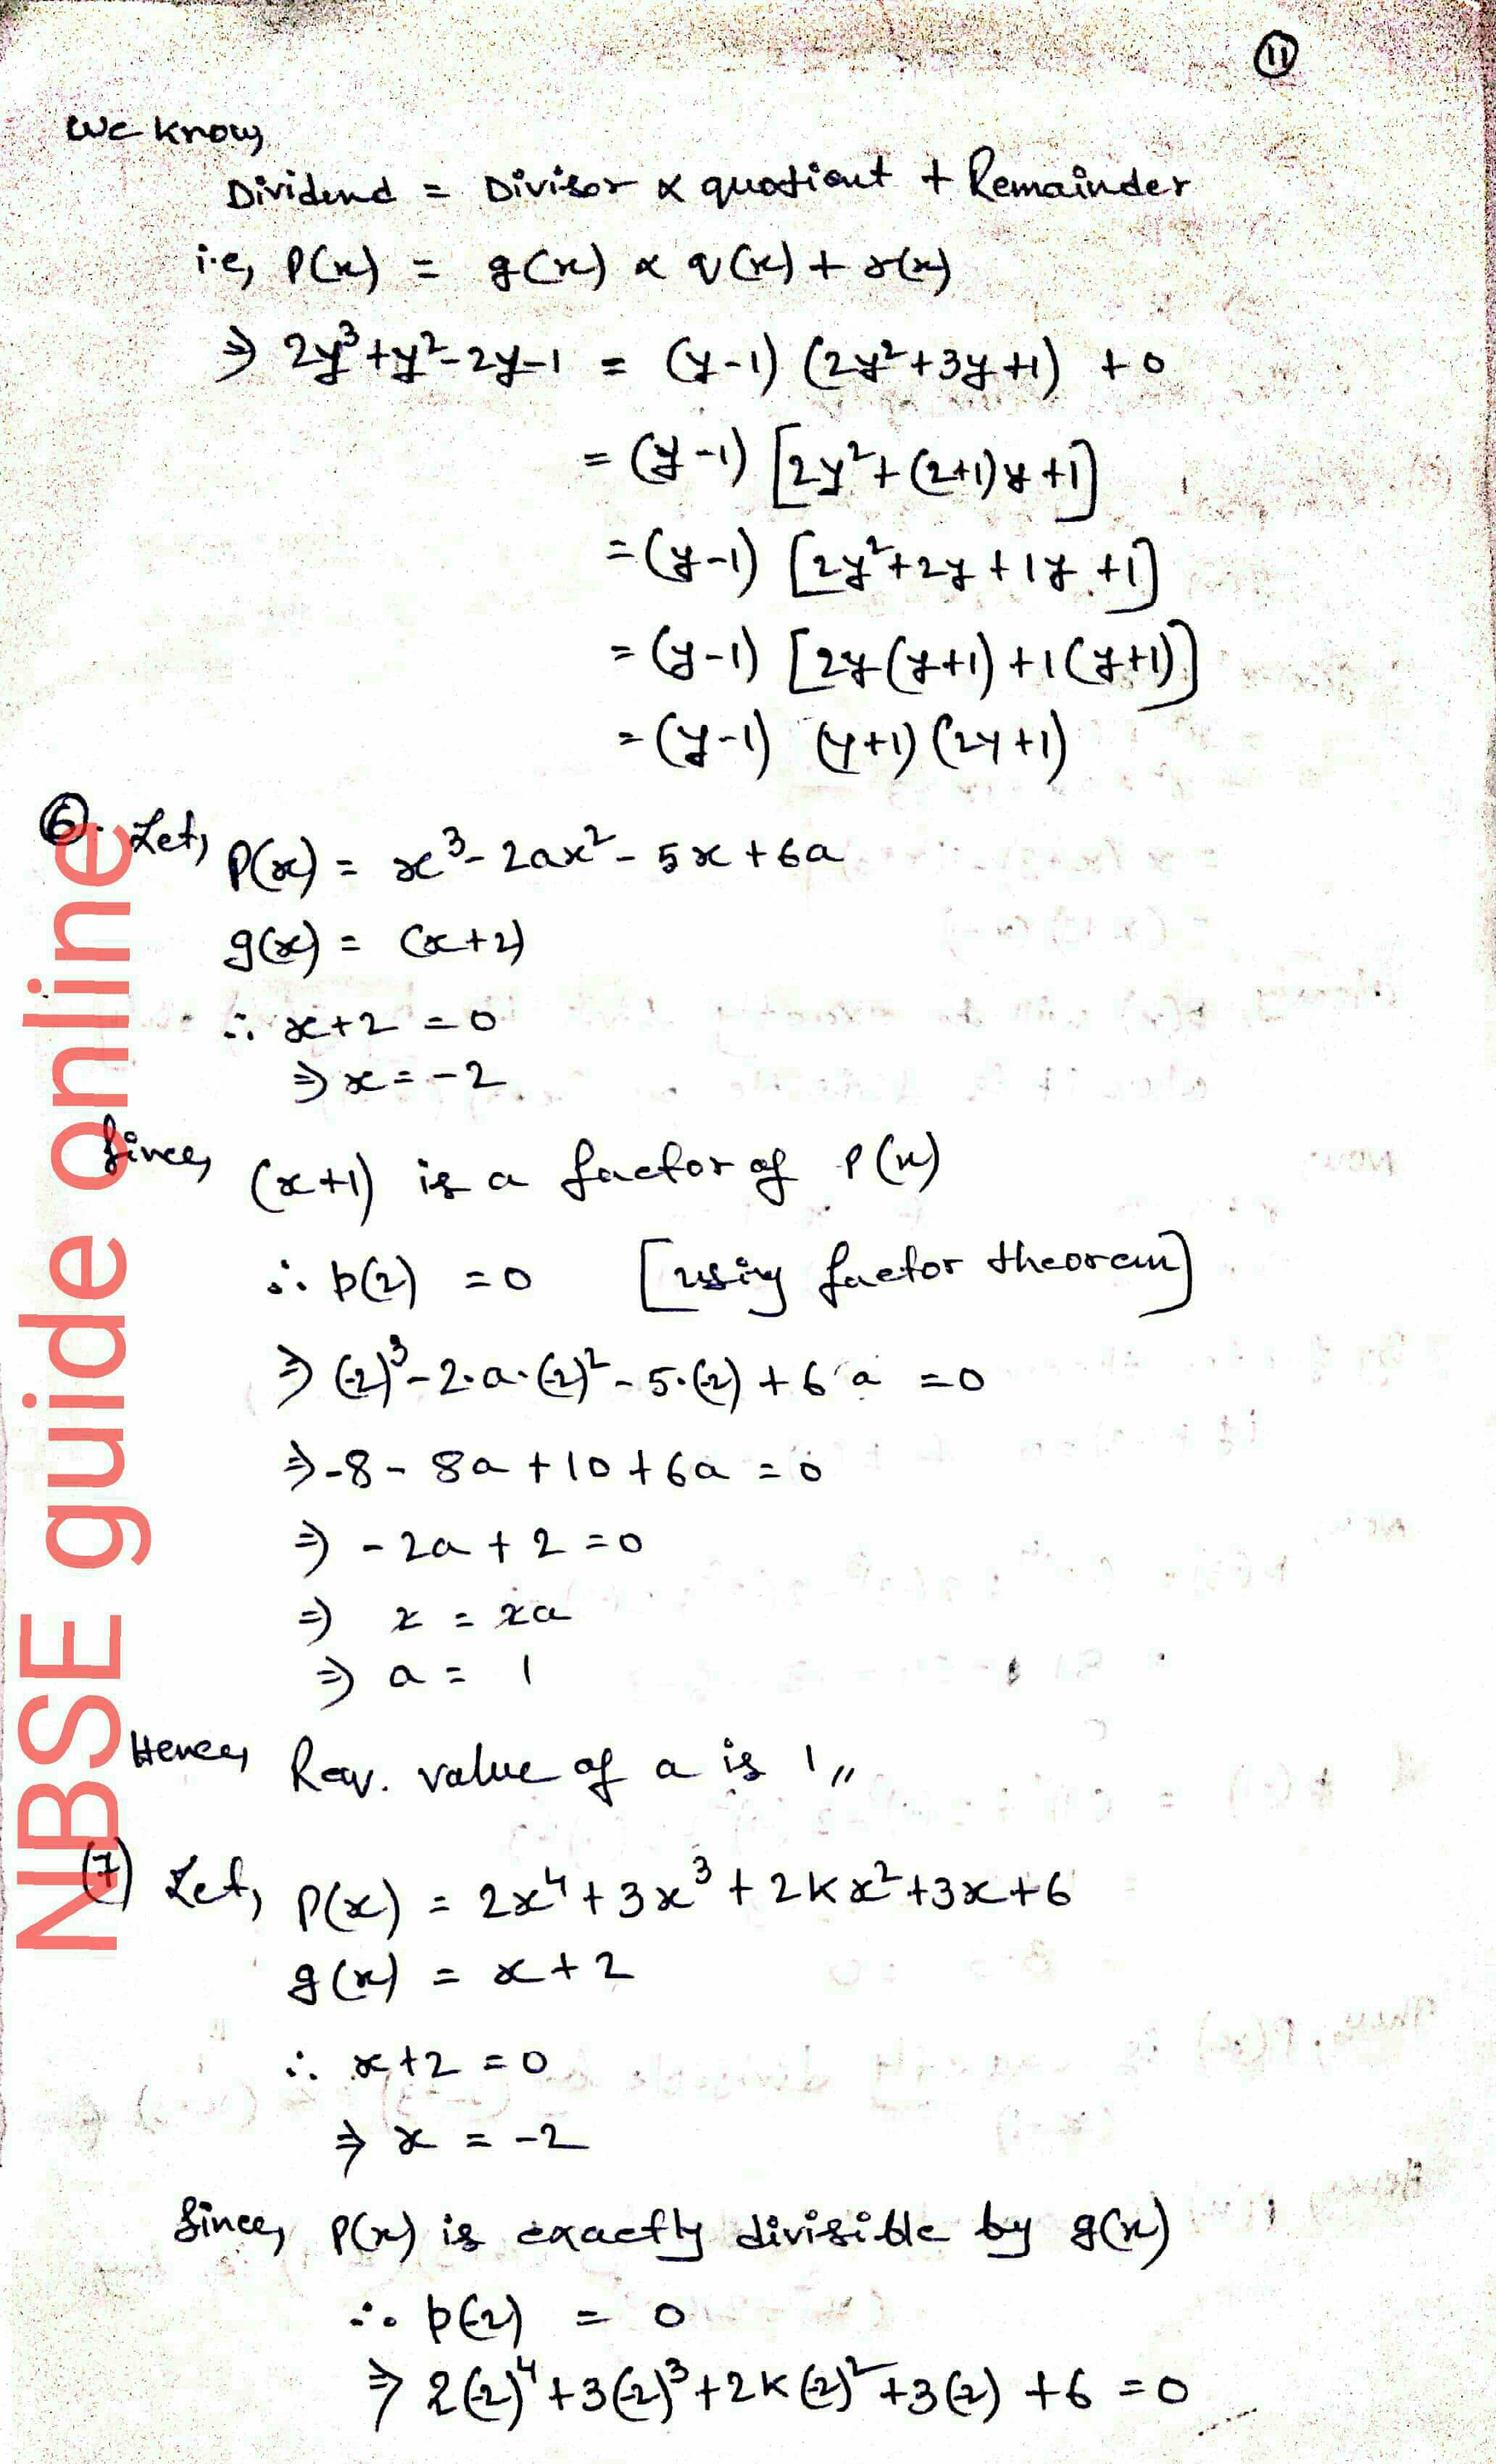 11
We know,
Dividend = Divisor x quotient + Remainder
i.e, P(x) = g(x) x q(x) + r(x)
⇒ 2y³+y²-2y-1 = (y-1) (2y²+3y+1) +0
= (y-1) [2y²+(2+1)y+1]
= (y-1) [2y²+2y+1y+1]
= (y-1) [2y(y+1)+1(y+1)]
= (y-1) (y+1) (2y+1)
6. Let, P(x) = x³-2ax²-5x+6a
g(x) = (x+2)
∴ x+2 = 0
⇒ x = -2
Since, (x+1) is a factor of P(x)
∴ p(2) = 0 [using factor theorem]
⇒ (-2)³-2.a.(-2)²-5.(-2)+6a = 0
⇒ -8-8a+10+6a = 0
⇒ -2a+2 = 0
⇒ 2 = 2a
⇒ a = 1
Hence, Req. value of a is 1,,
(7) Let, P(x) = 2x⁴+3x³+2kx²+3x+6
g(x) = x+2
∴ x+2 = 0
⇒ x = -2
Since, P(x) is exactly divisible by g(x)
∴ p(-2) = 0
⇒ 2(-2)⁴+3(-2)³+2k(-2)²+3(-2)+6 = 0
NBSE guide online